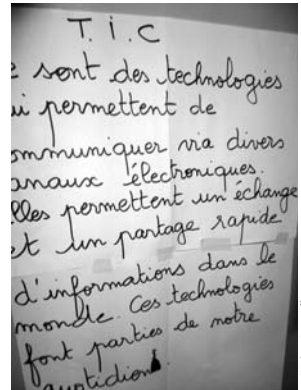 T. i. C
e sont des technologies
ui permettent de
ommuniquer via divers
anaux électroniques.
lles permettent un échange
et un partage rapide
d'informations dans le
monde. Ces technologies
font parties de notre
quotidien.